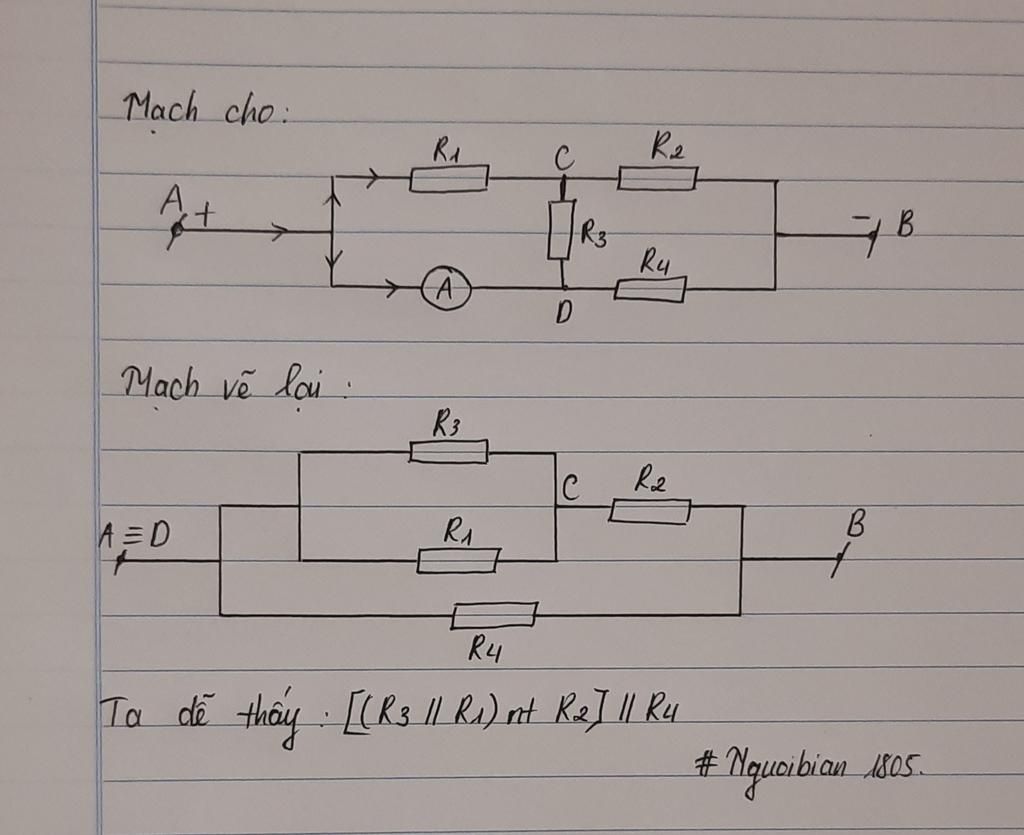 Mạch cho:
R1 C R2
A + - B
R3
A R4
D
Mạch vẽ lại:
R3
C R2
A ≡ D R1 B
R4
Ta dễ thấy: [(R3 // R1) nt R2] // R4
# Nguoibian 1805.